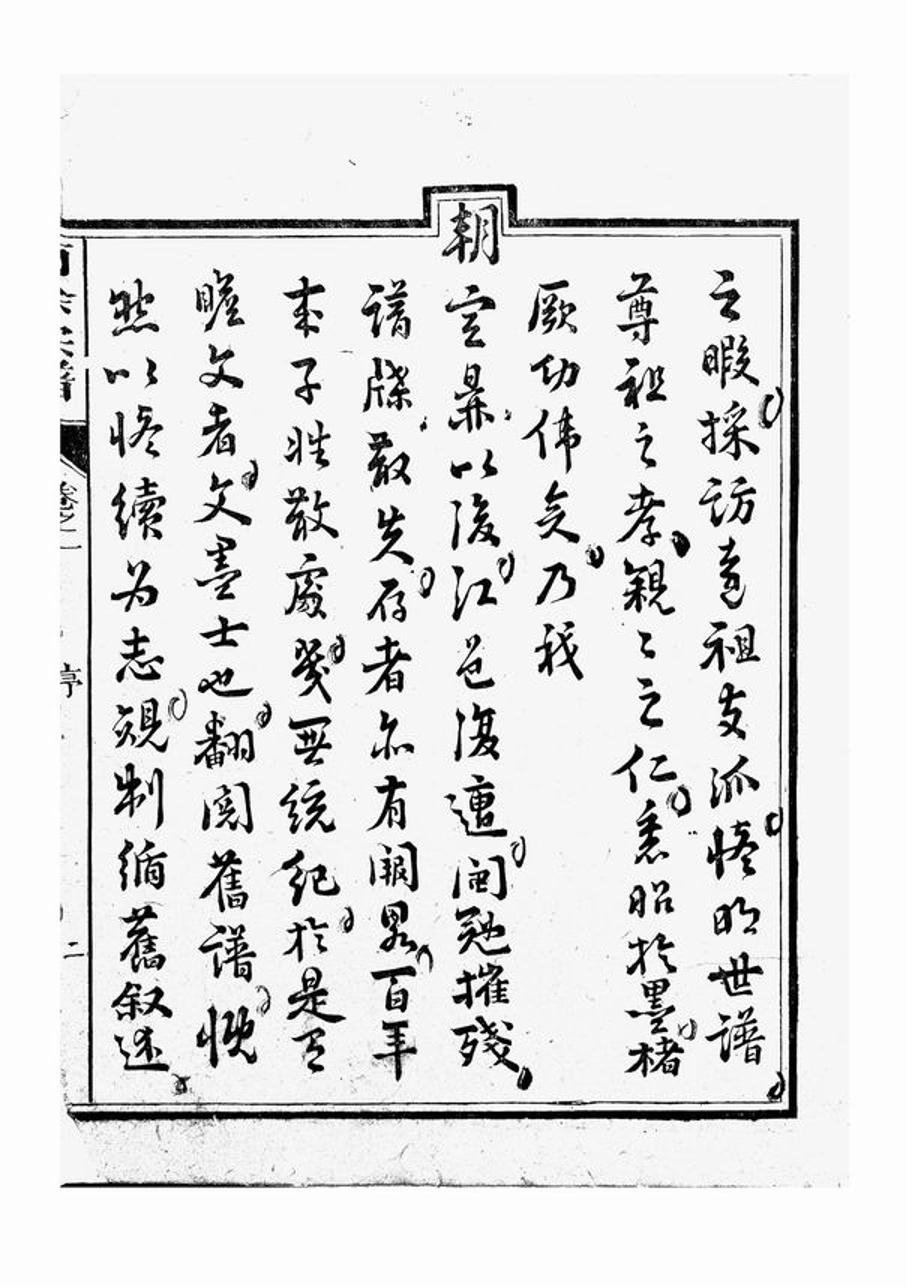 之暇採訪遠祖支派脩明世譜
尊祖之孝親〻之仁悉昭於墨楮
厥功偉矣乃我
朝定鼎以後江邑復遭閩逆摧殘
譜牒散失存者亦有闕畧百年
来子姓散處箋無統紀於是有
瞻文者文墨士也翻閱舊譜慨
然以脩續为志規制循舊叙述
卷之一
序
二